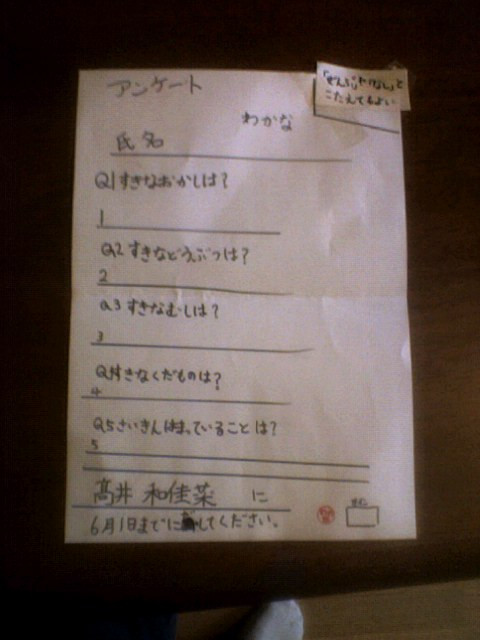 アンケート
「ぜんぶ
こたえてもよい
わかな
氏名
Q1すきなおかしは?
1
Q2すきなどうぶつは?
2
Q3すきなむしは?
3
Q4すきなくだものは?
4
Q5さいきんはまっていることは?
5
髙井 和佳菜 に
6月1日までに してください。